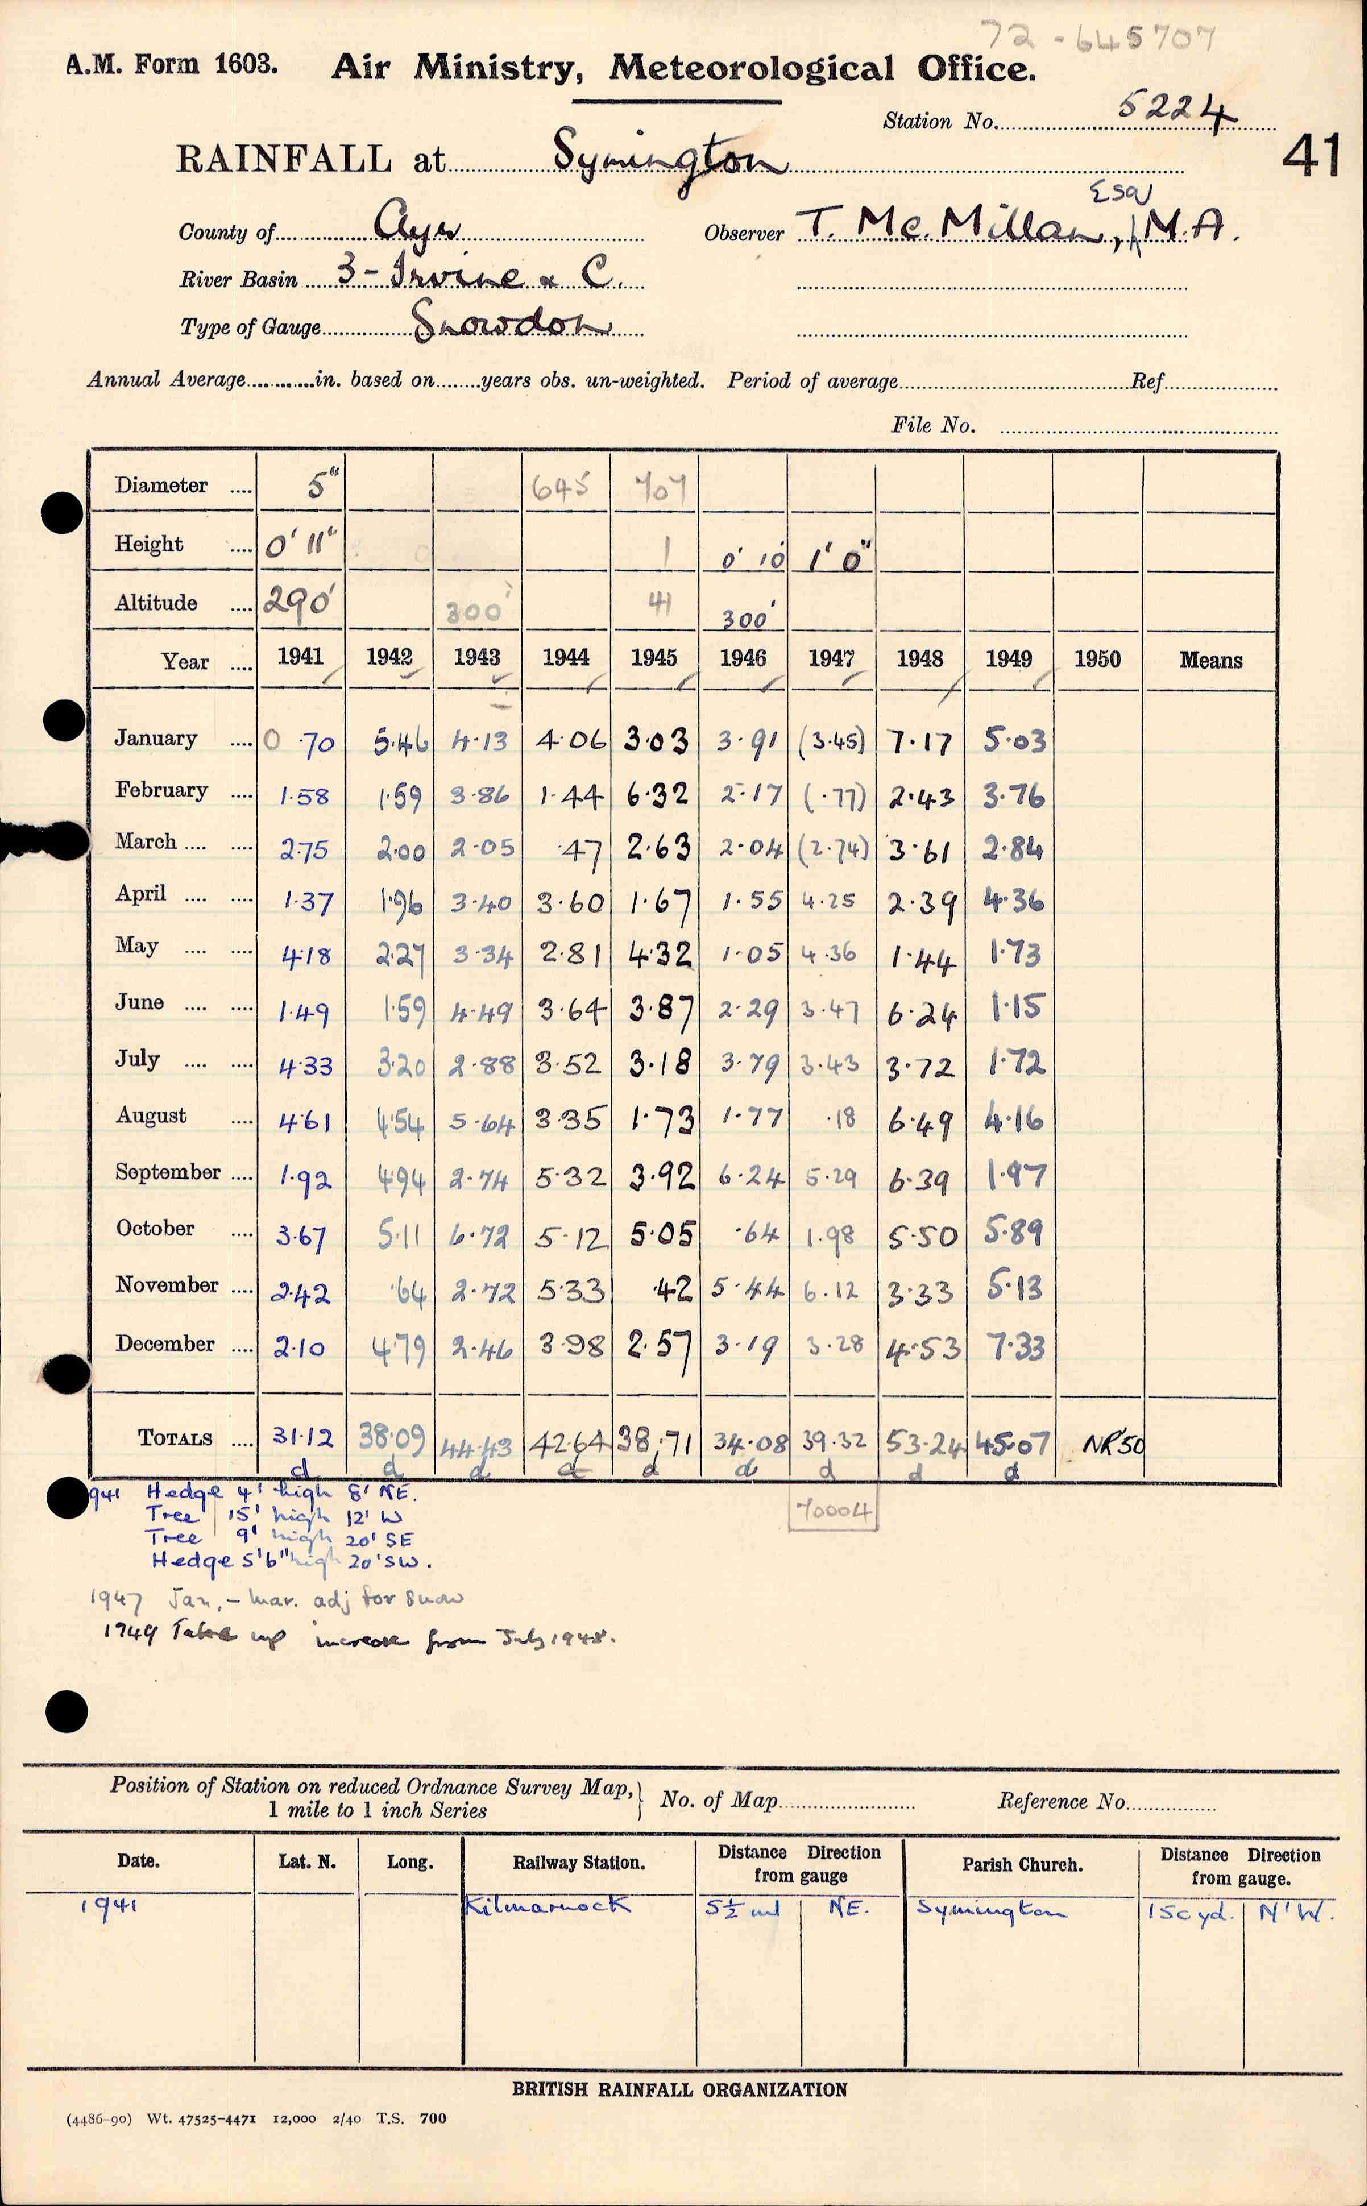 72-645707
A.M. Form 1603. Air Ministry, Meteorological Office.
Station No. 5224
41
RAINFALL at Symington
Esq
County of Ayr Observer T. McMillan, M.A.
River Basin 3 - Irvine & C.
Type of Gauge Snowdon
Annual Average............in. based on........years obs. un-weighted. Period of average........ Ref........
File No. ........
Diameter .... 5" 645 707
Height .... 0' 11" 1 0' 10 1' 0"
Altitude .... 290' 300' 41 300'
Year .... 1941 1942 1943 1944 1945 1946 1947 1948 1949 1950 Means
January .... 0.70 5.46 4.13 4.06 3.03 3.91 (3.45) 7.17 5.03
February .... 1.58 1.59 3.86 1.44 6.32 2.17 (.77) 2.43 3.76
March .... .... 2.75 2.00 2.05 .47 2.63 2.04 (2.74) 3.61 2.84
April .... .... 1.37 1.96 3.40 3.60 1.67 1.55 4.25 2.39 4.36
May .... .... 4.18 2.27 3.34 2.81 4.32 1.05 4.36 1.44 1.73
June .... .... 1.49 1.59 4.49 3.64 3.87 2.29 3.47 6.24 1.15
July .... .... 4.33 3.20 2.88 3.52 3.18 3.79 3.43 3.72 1.72
August .... 4.61 4.54 5.64 3.35 1.73 1.77 .18 6.49 4.16
September .... 1.92 4.94 2.74 5.32 3.92 6.24 5.29 6.39 1.97
October .... 3.67 5.11 6.72 5.12 5.05 .64 1.98 5.50 5.89
November .... 2.42 .64 2.72 5.33 .42 5.44 6.12 3.33 5.13
December .... 2.10 4.79 2.46 3.98 2.57 3.19 3.28 4.53 7.33
TOTALS .... 31.12 38.09 44.43 42.64 38.71 34.08 39.32 53.24 45.07 NR50
d d d d d d d d d
1941 Hedge 4' high 8' NE.
70004
Tree 15' high 12' W
Tree 9' high 20' SE
Hedge 5'6" high 20' SW.
1947 Jan.-Mar. adj for snow
1949 Take up increase from July 1948.
Position of Station on reduced Ordnance Survey Map, 1 mile to 1 inch Series } No. of Map........ Reference No........
Date. Lat. N. Long. Railway Station. Distance Direction from gauge Parish Church. Distance Direction from gauge.
1941 Kilmarnock 5½ ml NE. Symington 150 yd. N'W.
BRITISH RAINFALL ORGANIZATION
(4486-90) Wt. 47525-4471 12,000 2/40 T.S. 700